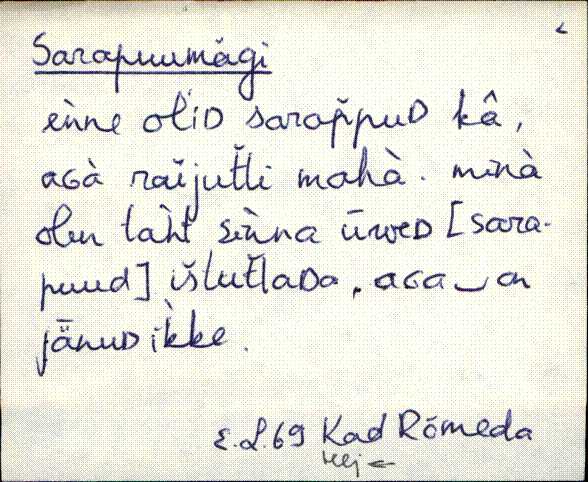 Sarapuumägi
ènne ol'iD sarap̆puD kâ,
aGà raĭjut̆ti mahà. minà
olen taht sìnna ūweD [sara-
puud] ist̆ut̆taDa, aGa‿on
jǟnuD ìkke.
E.L.69 Kad Rõmeda